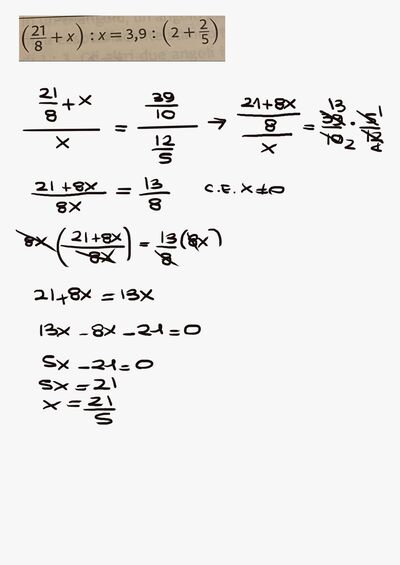 (21/8 + x) : x = 3,9 : (2 + 2/5)
(21/8 + x)/x = (39/10)/(12/5) → ((21+8x)/8)/x = 13 39/10 2 · 5 1/12 4
(21+8x)/8x = 13/8 C.E. x≠0
8x((21+8x)/8x) = 13/8 (8x)
21+8x = 13x
13x - 8x - 21 = 0
5x - 21 = 0
5x = 21
x = 21/5